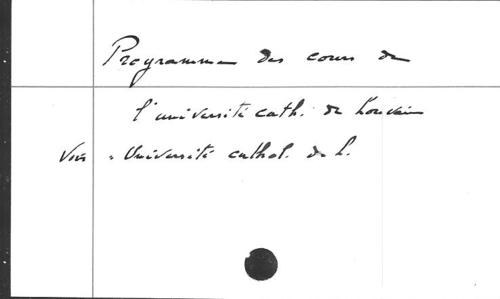 Programme des cours de
l'université cath. de Louvain
Voir : Université cathol. de L.